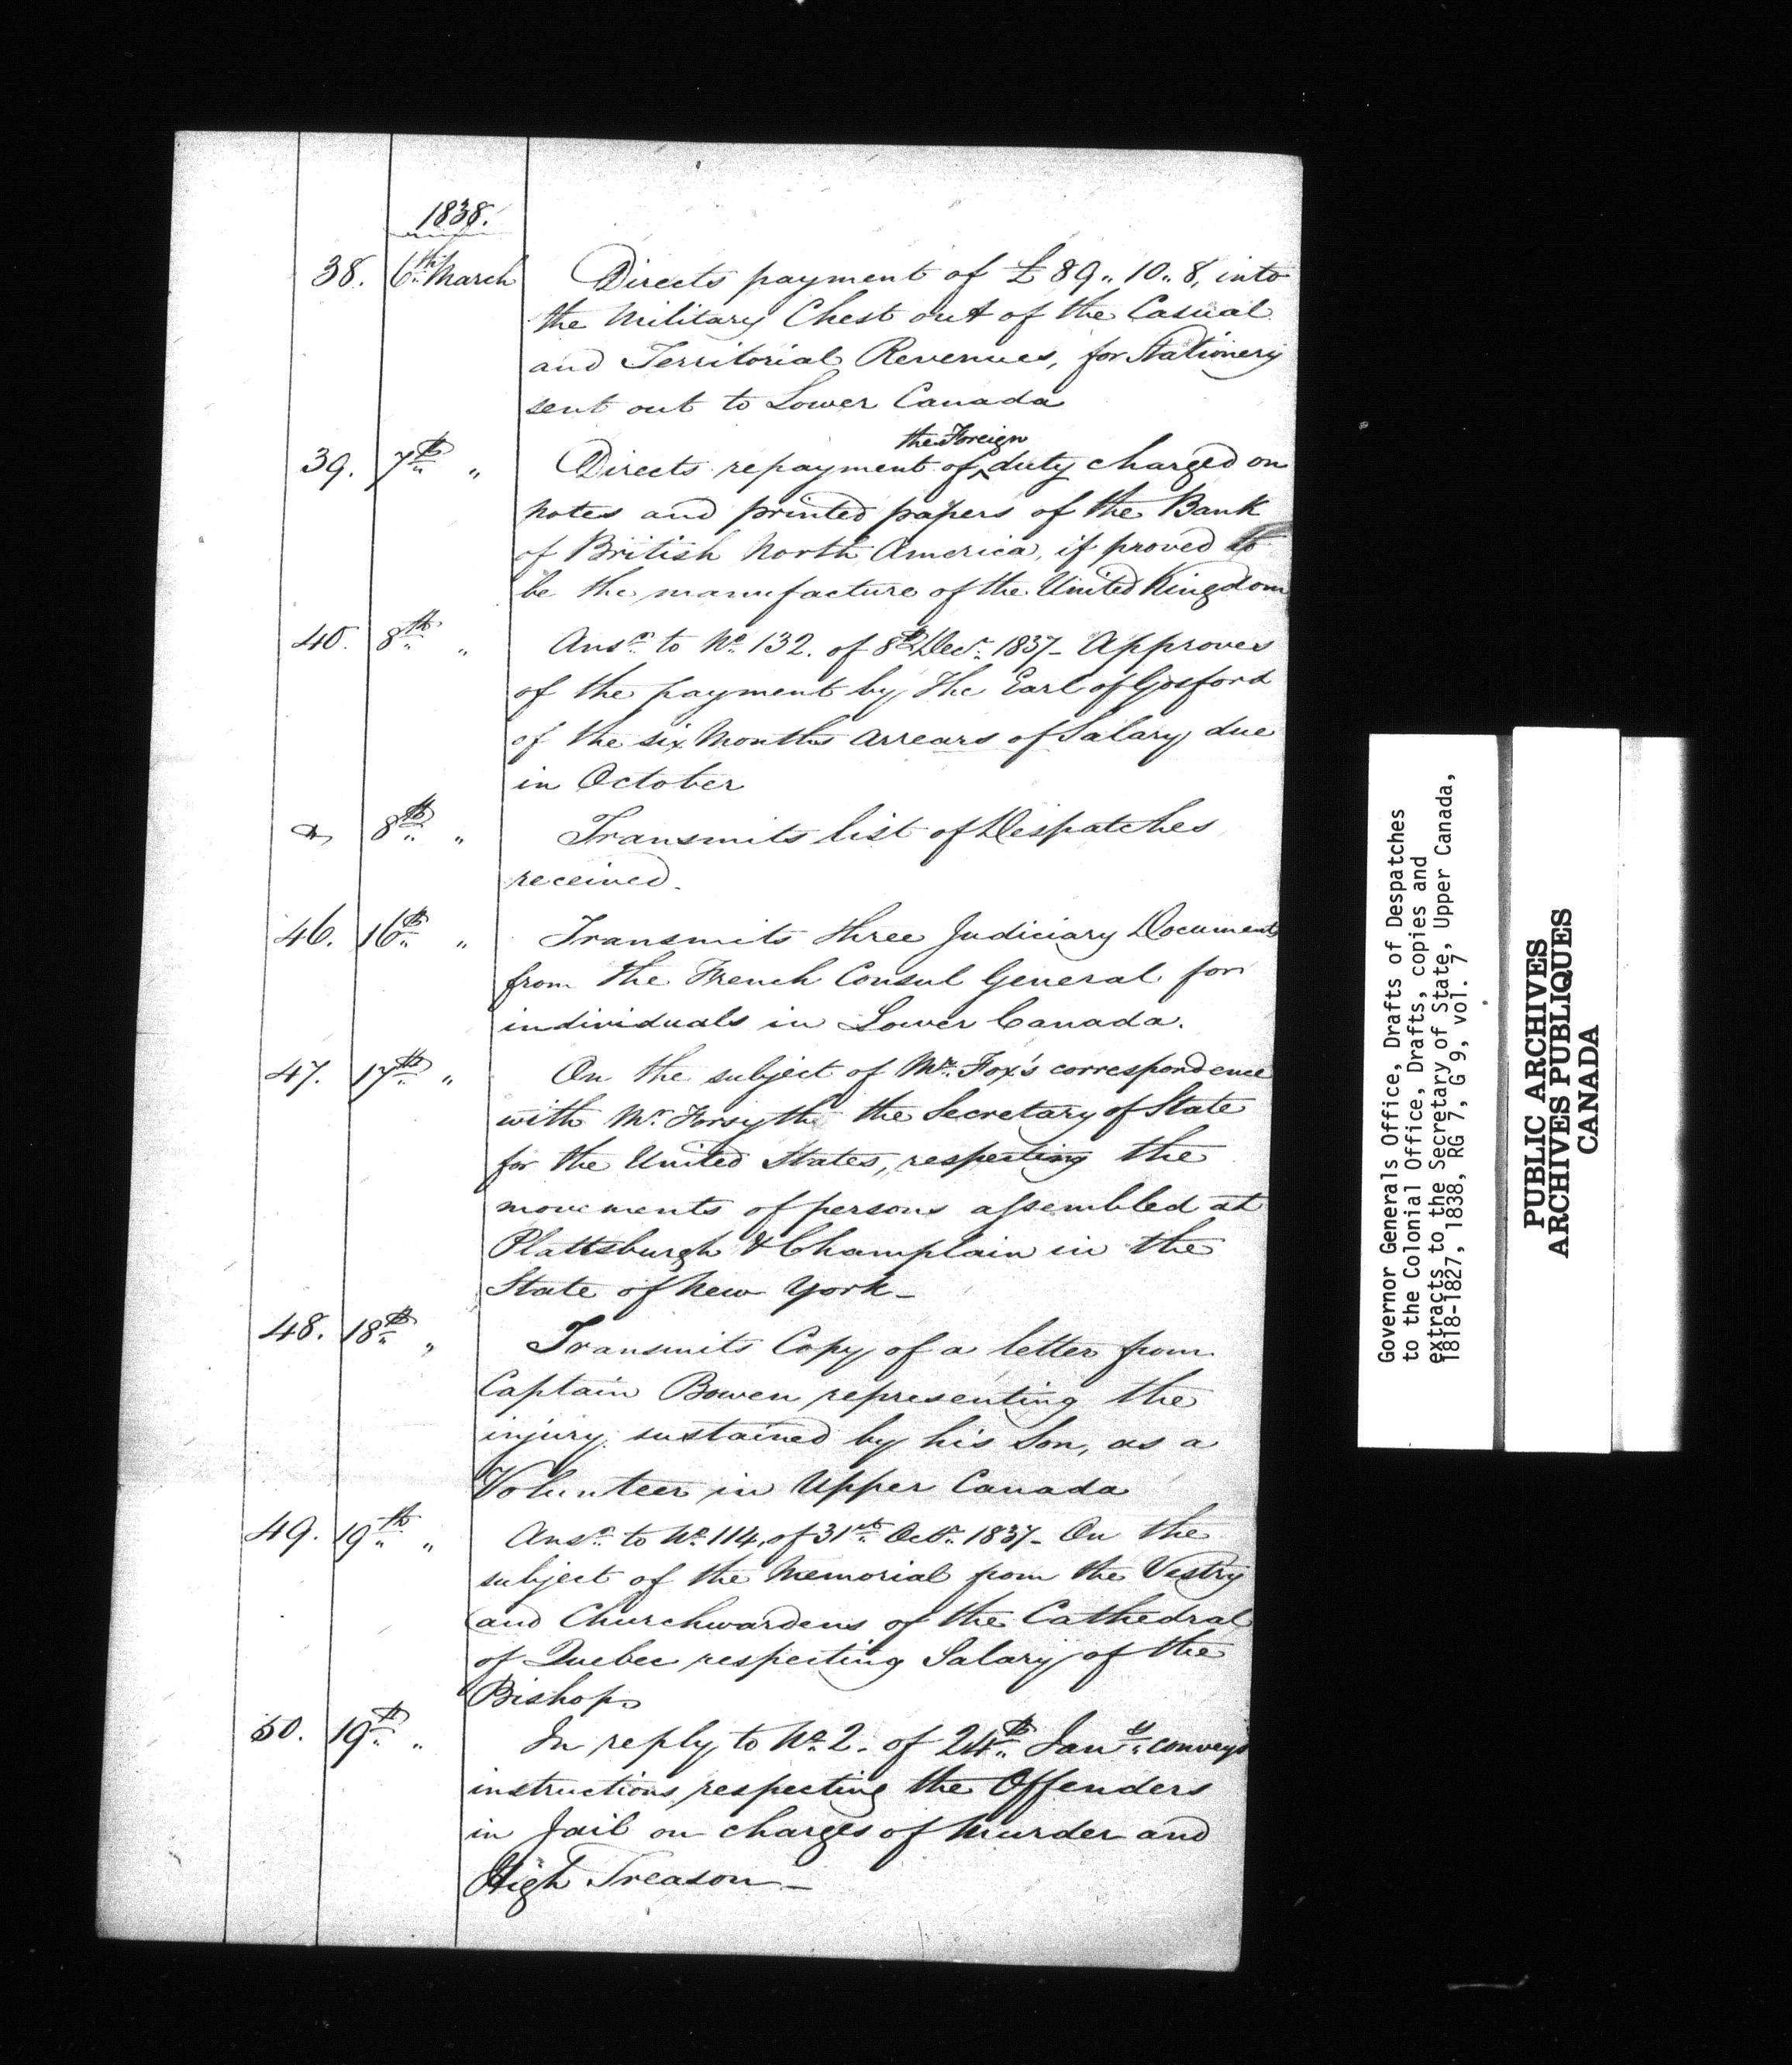 1838.
38. 6th March Directs payment of £89.. 10.. 8, into
the Military Chest out of the Casual
and Territorial Revenues, for Stationery
sent out to Lower Canada
39. 7th " Directs repayment of the Foreign duty charged on
notes and printed papers of the Bank
of British North America, if proved to
be the manufacture of the United Kingdom
40. 8th " Ansr. to No. 132. of 8th Decr. 1837 - Approves
of the payment by The Earl of Gosford
of the six Months arrears of Salary due
in October
8th " Transmits list of Despatches
received.
46. 16th " Transmits three Judiciary Documents
from the French Consul General for
individuals in Lower Canada.
47. 17th " On the subject of Mr. Fox's correspondence
with Mr. Forsyth the Secretary of State
for the United States, respecting the
movements of persons assembled at
Plattsburgh & Champlain in the
State of New York -
48. 18th " Transmits Copy of a letter from
Captain Bowen representing the
injury sustained by his Son, as a
Volunteer in Upper Canada
49. 19th " Ansr. to No. 114, of 31st Octr. 1837 - On the
subject of the Memorial from the Vestry
and Churchwardens of the Cathedral
of Quebec respecting Salary of the
Bishop
50. 19th " In reply to No. 2. of 24th Jany. conveys
instructions respecting the Offenders
in Jail on charges of Murder and
High Treason -
Governor Generals Office, Drafts of Despatches
to the Colonial Office, Drafts, copies and
extracts to the Secretary of State, Upper Canada,
1818-1827, 1838, RG 7, G 9, vol. 7
PUBLIC ARCHIVES
ARCHIVES PUBLIQUES
CANADA